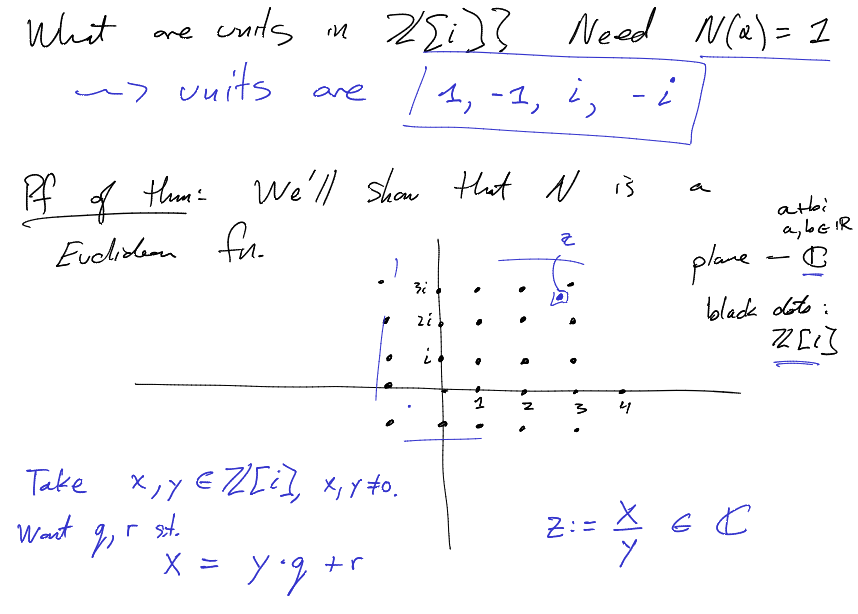 What are units in ℤ[i]? Need N(α) = 1
⇝ units are 1, -1, i, -i
Pf of thm: We'll show that N is a
Euclidean fn.
a+bi
a,b∈ℝ
plane – ℂ
black dots:
ℤ[i]
z
3i
2i
i
1 2 3 4
Take x, y ∈ ℤ[i], x, y ≠ 0.
Want q, r s.t.
x = y·q + r
z := x/y ∈ ℂ